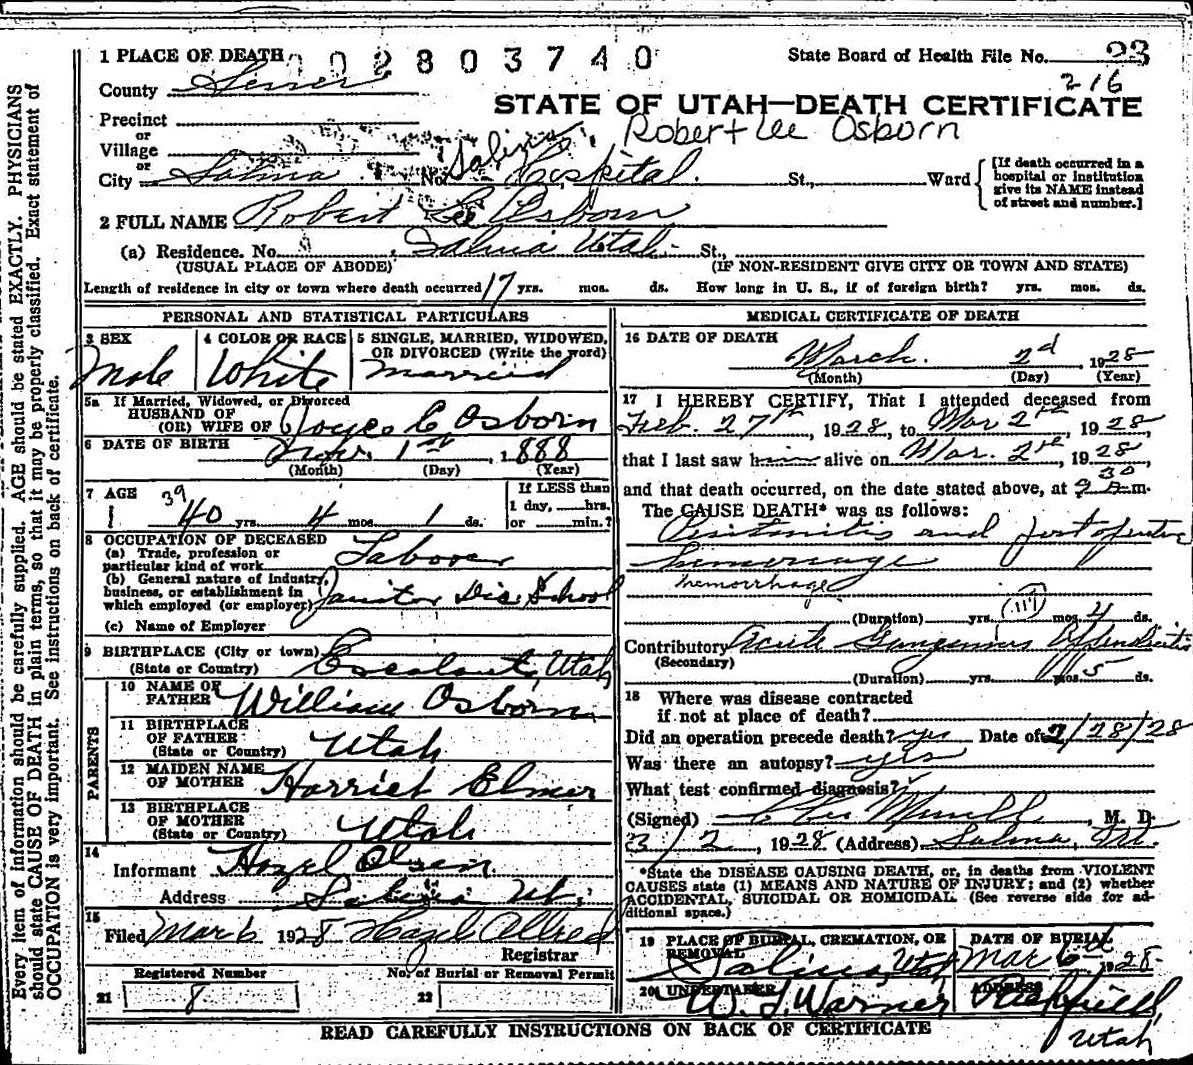 1 PLACE OF DEATH 002803740 State Board of Health File No. 23
County Sevier 216
STATE OF UTAH—DEATH CERTIFICATE
Precinct
or
Village
Robert Lee Osborn
or
City Salina No. Salina Hospital St., Ward
[If death occurred in a
hospital or institution
give its NAME instead
of street and number.]
2 FULL NAME Robert Lee Osborn
(a) Residence. No. Salina Utah St.,
(USUAL PLACE OF ABODE) (IF NON-RESIDENT GIVE CITY OR TOWN AND STATE)
Length of residence in city or town where death occurred 17 yrs. mos. ds. How long in U. S., if of foreign birth? yrs. mos. ds.
PERSONAL AND STATISTICAL PARTICULARS
3 SEX
Male
4 COLOR OR RACE
White
5 SINGLE, MARRIED, WIDOWED,
OR DIVORCED (Write the word)
Married
5a If Married, Widowed, or Divorced
HUSBAND OF
(OR) WIFE OF Joyce C Osborn
6 DATE OF BIRTH Nov. 1st, 1888
(Month) (Day) (Year)
7 AGE 39
40 yrs. 4 mos. 1 ds.
If LESS than
1 day, hrs.
or min.?
8 OCCUPATION OF DECEASED
(a) Trade, profession or
particular kind of work Laborer
(b) General nature of industry,
business, or establishment in
which employed (or employer) Janitor Dis. School
(c) Name of Employer
9 BIRTHPLACE (City or town)
(State or Country) Escalant, Utah
PARENTS
10 NAME OF
FATHER William Osborn
11 BIRTHPLACE
OF FATHER
(State or Country) Utah
12 MAIDEN NAME
OF MOTHER Harriet Elmer
13 BIRTHPLACE
OF MOTHER
(State or Country) Utah
14
Informant Hazel Olsen
Address Salina Ut.
15
Filed Mar 6 1928 Hazel Allred
Registrar
Registered Number No. of Burial or Removal Permit
21 8 22
MEDICAL CERTIFICATE OF DEATH
16 DATE OF DEATH
March 2d, 1928
(Month) (Day) (Year)
17 I HEREBY CERTIFY, That I attended deceased from
Feb. 27th, 1928, to Mar 2nd, 1928,
that I last saw him alive on Mar. 2nd, 1928,
and that death occurred, on the date stated above, at 9 30 A.m.
The CAUSE DEATH* was as follows:
Peritonitis and postoperative
hemorrage
hemorrhage
(117)
(Duration) yrs. mos. 4 ds.
Contributory Acute Gangrenous Appendicitis
(Secondary)
(Duration) yrs. mos. 5 ds.
18 Where was disease contracted
if not at place of death?
Did an operation precede death? yes Date of 2/28/28
Was there an autopsy? yes
What test confirmed diagnosis?
(Signed) M. D.
3/2, 1928 (Address) Salina, Ut.
*State the DISEASE CAUSING DEATH, or, in deaths from VIOLENT
CAUSES state (1) MEANS AND NATURE OF INJURY; and (2) whether
ACCIDENTAL, SUICIDAL OR HOMICIDAL. (See reverse side for ad-
ditional space.)
19 PLACE OF BURIAL, CREMATION, OR
REMOVAL
Salina, Utah
DATE OF BURIAL
Mar 6th 1928
20 UNDERTAKER
W. J. Warner
ADDRESS
Richfield,
Utah
READ CAREFULLY INSTRUCTIONS ON BACK OF CERTIFICATE
Every item of information should be carefully supplied. AGE should be stated EXACTLY. PHYSICIANS
should state CAUSE OF DEATH in plain terms, so that it may be properly classified. Exact statement of
OCCUPATION is very important. See instructions on back of certificate.